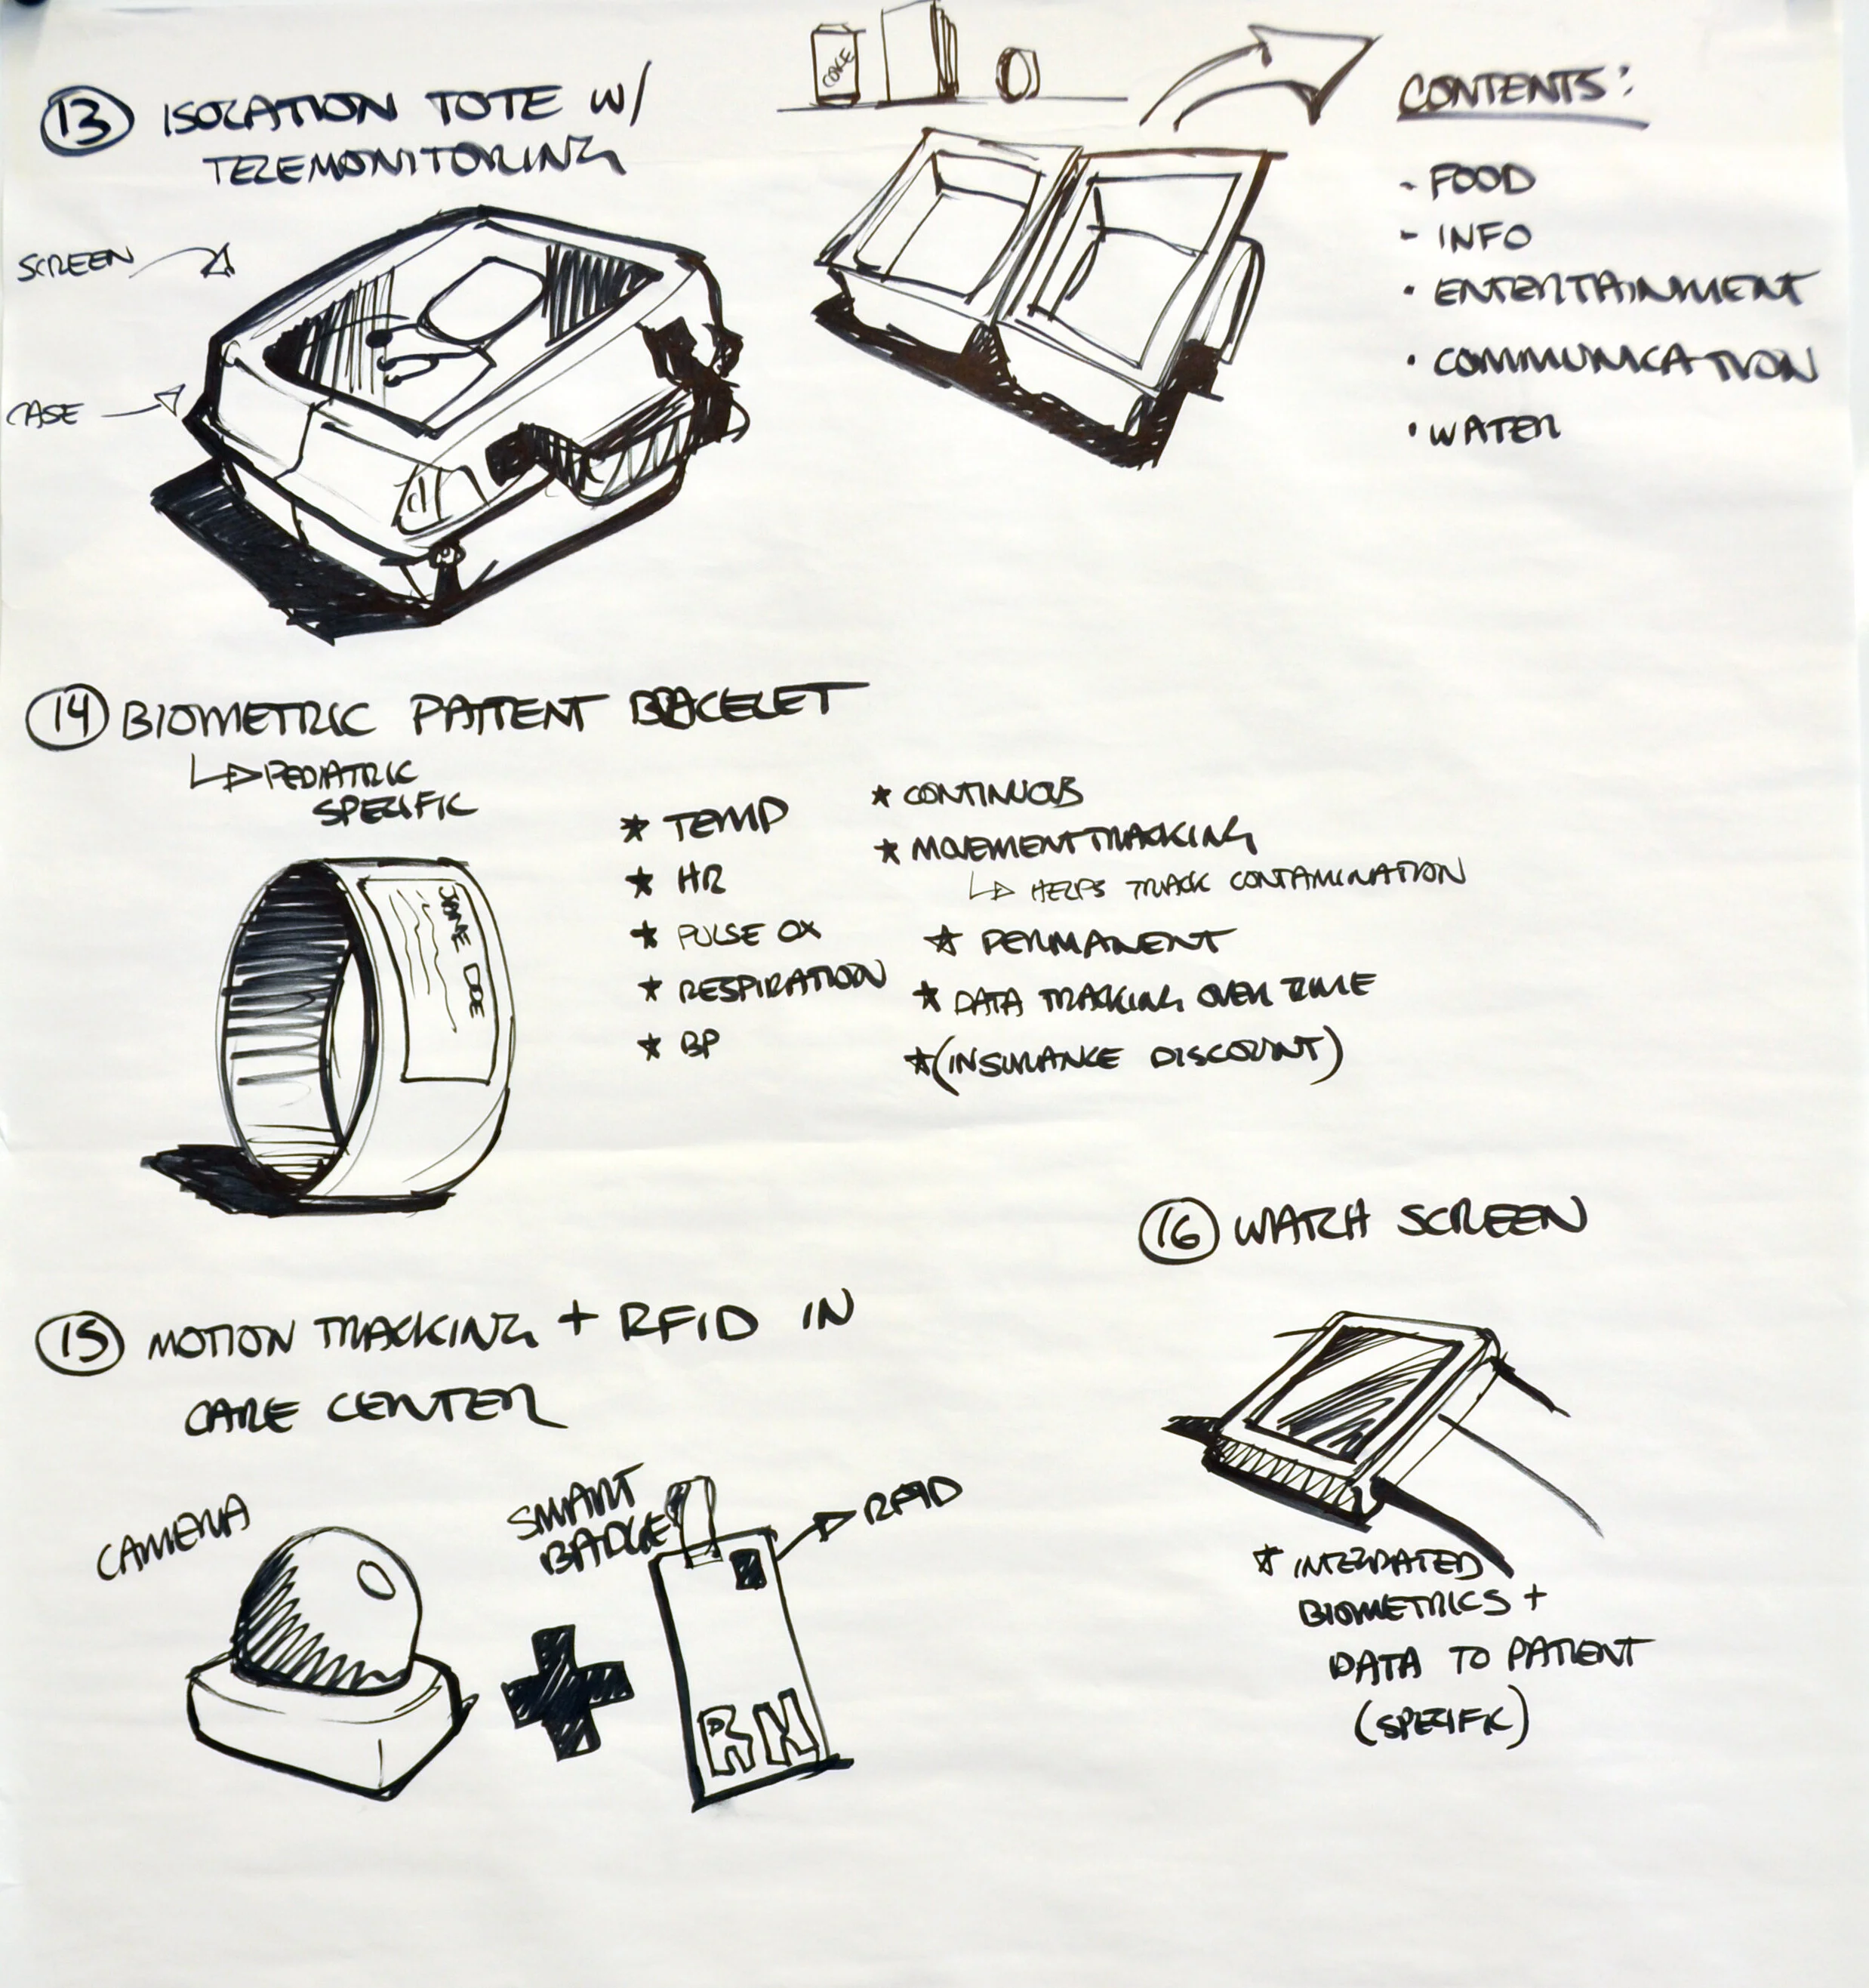 13 ISOLATION TOTE W/
TELEMONITORING
SCREEN
CASE
COKE
CONTENTS:
- FOOD
- INFO
• ENTERTAINMENT
• COMMUNICATION
• WATER
14 BIOMETRIC PATIENT BRACELET
PEDIATRIC
SPECIFIC
JANE DOE
★ TEMP
★ HR
★ PULSE OX
★ RESPIRATION
★ BP
★ CONTINUOUS
★ MOVEMENT TRACKING
HELPS TRACK CONTAMINATION
★ PERMANENT
★ DATA TRACKING OVER TIME
★ (INSURANCE DISCOUNT)
15 MOTION TRACKING + RFID IN
CARE CENTER
CAMERA
SMART
BADGE
RFID
RN
16 WATCH SCREEN
★ INTEGRATED
BIOMETRICS +
DATA TO PATIENT
(SPECIFIC)